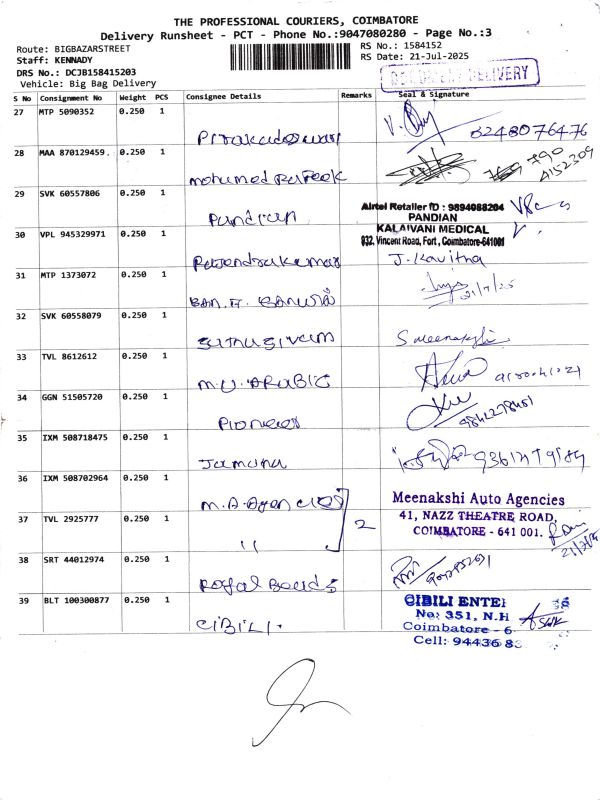 THE PROFESSIONAL COURIERS, COIMBATORE
Delivery Runsheet - PCT - Phone No.:9047080280 - Page No.:3
Route: BIGBAZARSTREET
RS No.: 1584152
Staff: KENNADY
RS Date: 21-Jul-2025
DRS No.: DCJB158415203
Vehicle: Big Bag Delivery
DOCUMENT DELIVERY
S No Consignment No Weight PCS Consignee Details Remarks Seal & Signature
27 MTP 5090352 0.250 1
8248076476
28 MAA 870129459. 0.250 1
790
A152309
mohumed Rafeek
29 SVK 60557806 0.250 1
Pandiyan
Airtel Retailer ID : 9894088204
PANDIAN
KALAIVANI MEDICAL
932, Vincent Road, Fort, Coimbatore-641001
30 VPL 945329971 0.250 1
Rajendrakumar
J. Kavitha
31 MTP 1373072 0.250 1
21/7/25
32 SVK 60558079 0.250 1
S Meenakshi
33 TVL 8612612 0.250 1
M.U. ARABIC
34 GGN 51505720 0.250 1
Pioneer
9842278451
35 IXM 508718475 0.250 1
Jamuna
36 IXM 508702964 0.250 1
M.A. Agencies
2
Meenakshi Auto Agencies
41, NAZZ THEATRE ROAD,
COIMBATORE - 641 001.
37 TVL 2925777 0.250 1
"
38 SRT 44012974 0.250 1
Royal Bonds
39 BLT 100300877 0.250 1
CIBILI
CIBILI ENTE
No: 351, N.H
Coimbatore - 6
Cell: 94436 83